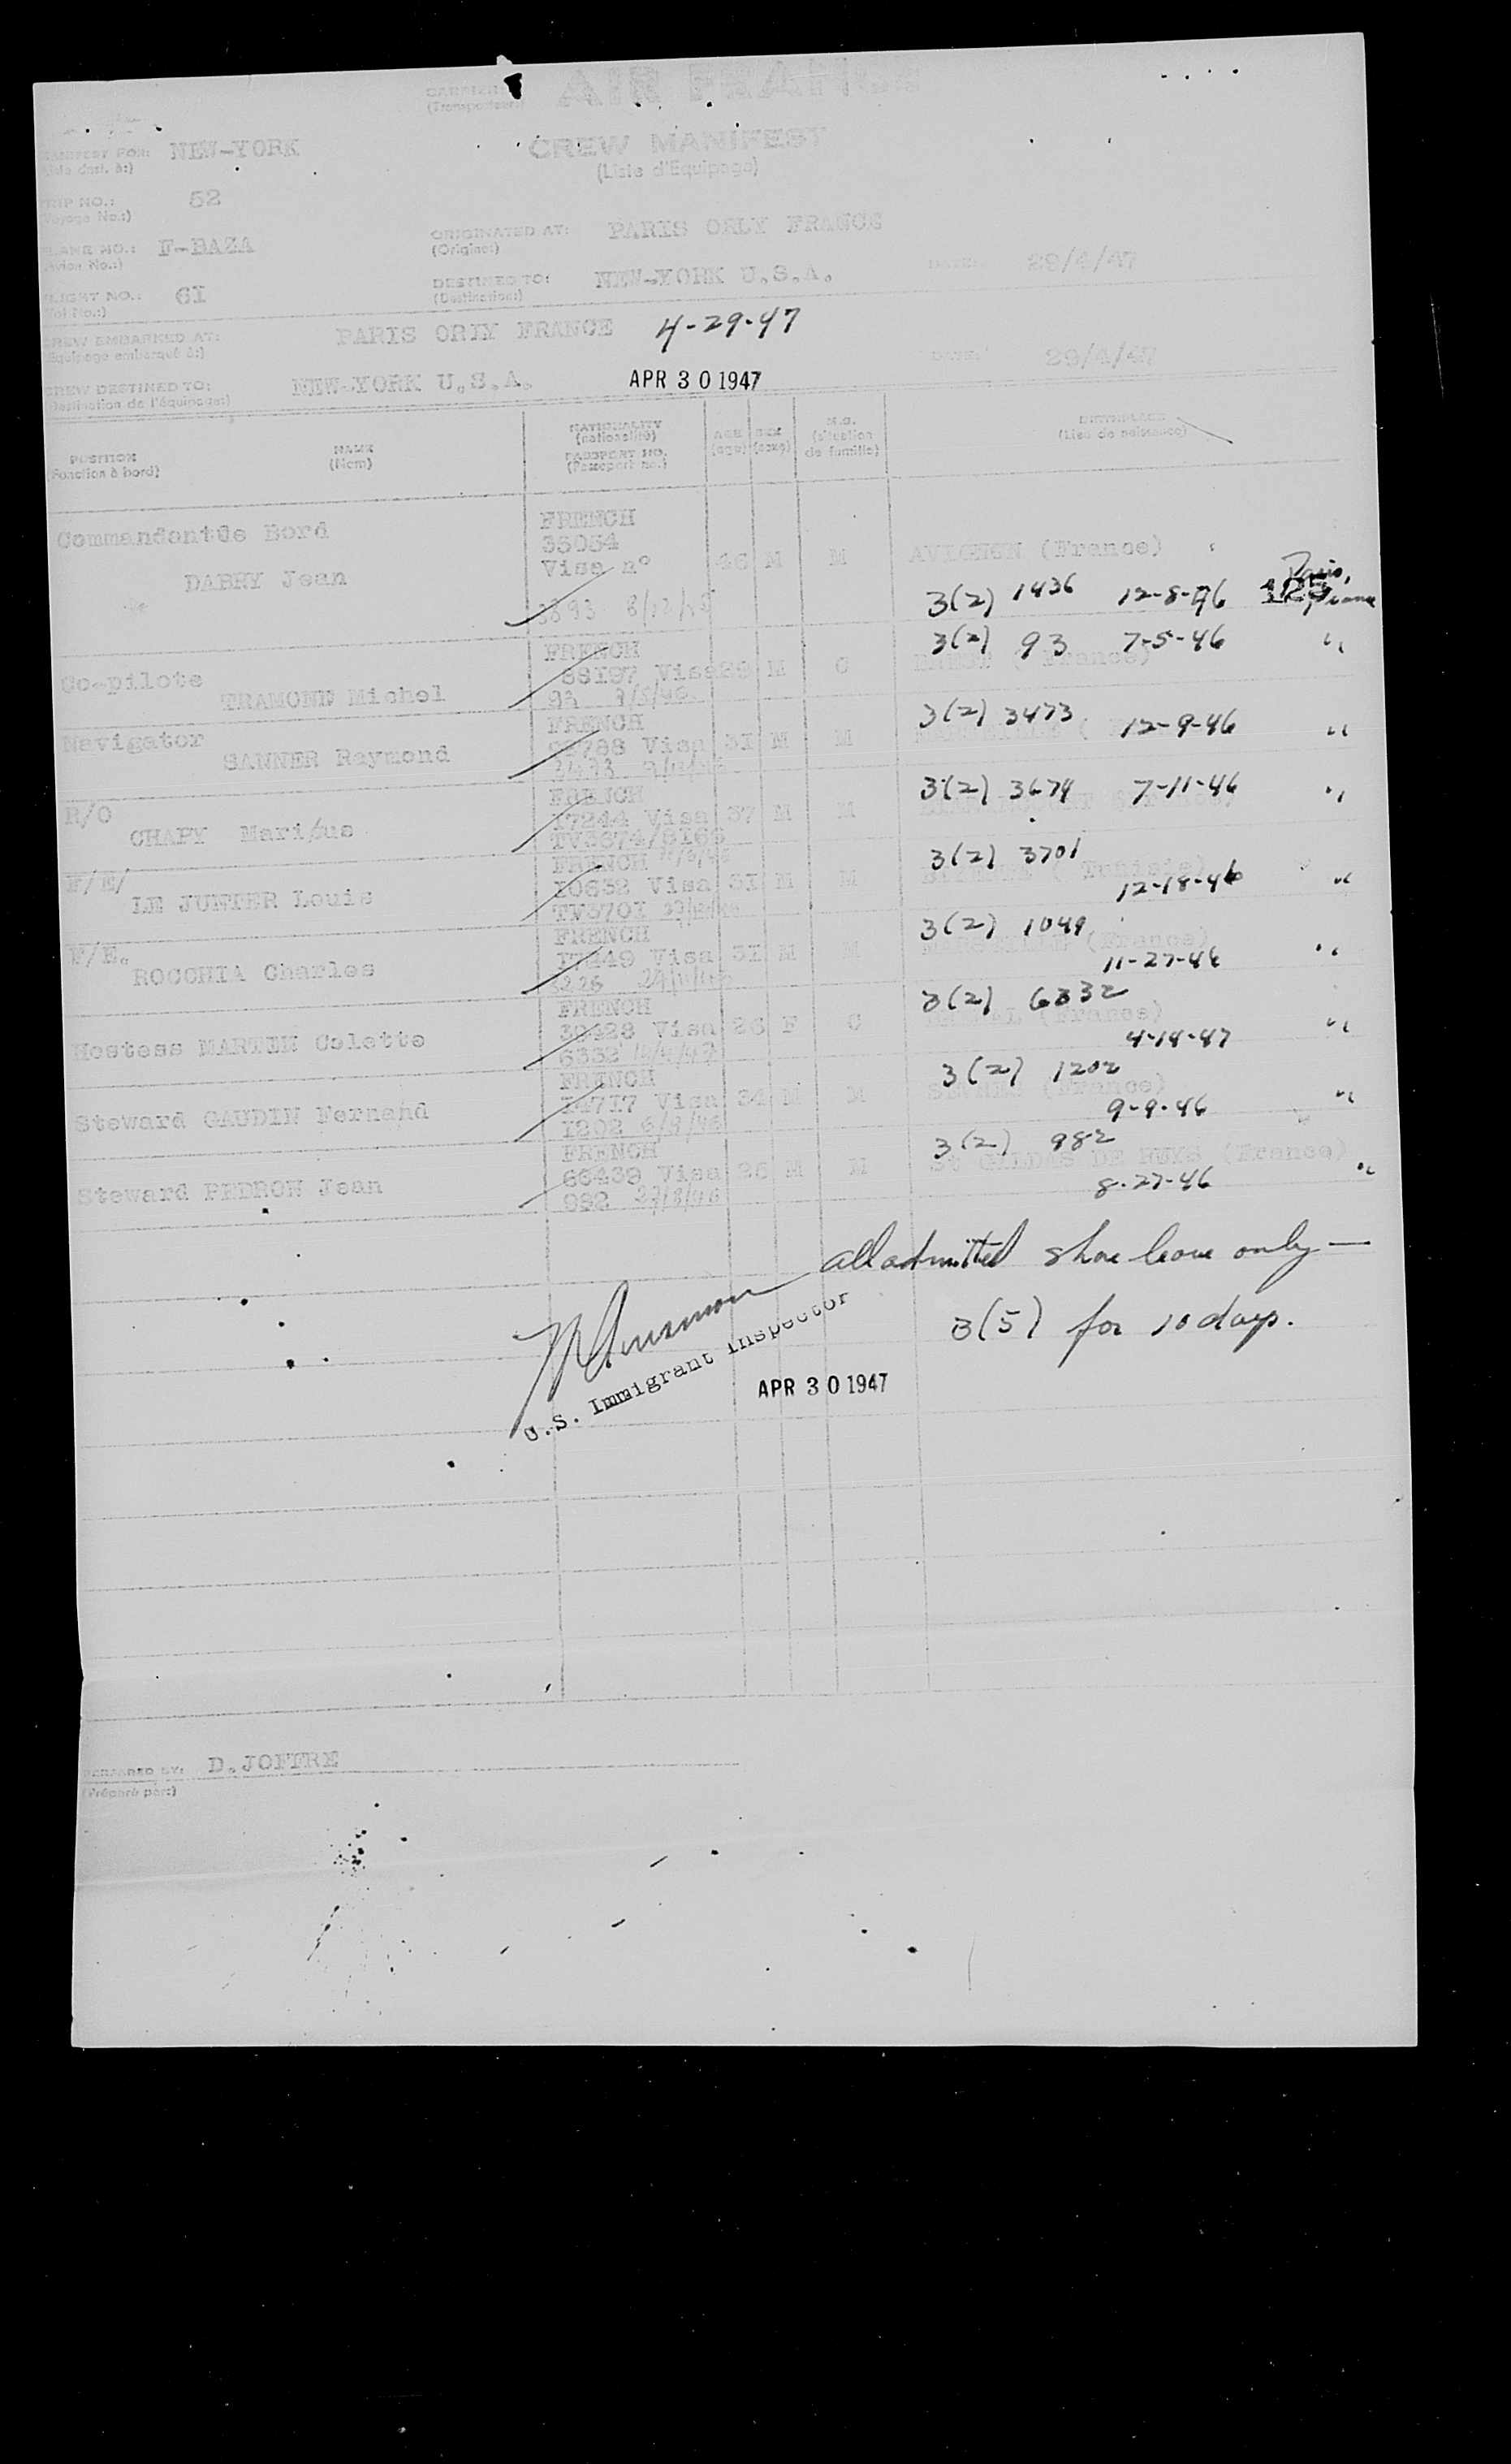 CARRIER: AIR FRANCE
(Transporteur:)
CREW MANIFEST
(Liste d'Equipage)
MANIFEST FOR: NEW-YORK
TRIP NO.: 52
(Voyage No.:)
PLANE NO.: F-BAZA
(Avion No.:)
ORIGINATED AT: PARIS ORLY FRANCE
(Origine:)
FLIGHT NO.: 6I
(Vol No.:)
DESTINED TO: NEW-YORK U.S.A. DATE: 29/4/47
(Destination:)
CREW EMBARKED AT: PARIS ORLY FRANCE 4-29-47
(Equipage embarqué à:)
DATE: 29/4/47
CREW DESTINED TO: NEW-YORK U.S.A. APR 30 1947
(Destination de l'équipage:)
POSITION NAME NATIONALITY AGE SEX M.S. BIRTHPLACE
(Fonction à bord) (Nom) (nationalité) (age) (sexe) (situation de famille) (Lieu de naissance)
PASSPORT NO.
(Passeport no.)
Commandant de Bord FRENCH
35054
DABRY Jean Visa n° 46 M M AVIGNON (France)
8/12/46 3(2) 1436 12-8-46 Paris, France
Co-pilote FRENCH 3(2) 93 7-5-46 "
TRAMOND Michel 88197 Visa 29 M C
93 7/5/46
Navigator FRENCH 3(2) 3473 12-9-46 "
SANNER Raymond Visa 3I M M
R/O FRENCH 3(2) 3674 7-11-46 "
CHAPY Marius I7244 Visa 37 M M
TV3674/8I66
F/E/ FRENCH 3(2) 3701
LE JUNTER Louis I0632 Visa 3I M M (Tunisie) 12-18-46 "
TV370I
F/E. FRENCH 3(2) 1049
ROCCHIA Charles I7249 Visa 3I M M MARSEILLE (France) 11-27-46 "
FRENCH 3(2) 6332
Hostess MARTIN Colette 30428 Visa 26 F C (France) 4-14-47 "
6332 14/4/47
FRENCH 3(2) 1202
Steward GAUDIN Fernand I4717 Visa 34 M M (France) 9-9-46 "
I202
FRENCH 3(2) 982
Steward PEDRON Jean 66439 Visa 26 M M St GILDAS DE RUYS (France) 8-27-46 "
982 27/8/46
all admitted shore leave only —
3(5) for 10 days.
U.S. Immigrant Inspector
APR 30 1947
PREPARED BY: D.JOFFRE
(Préparé par:)